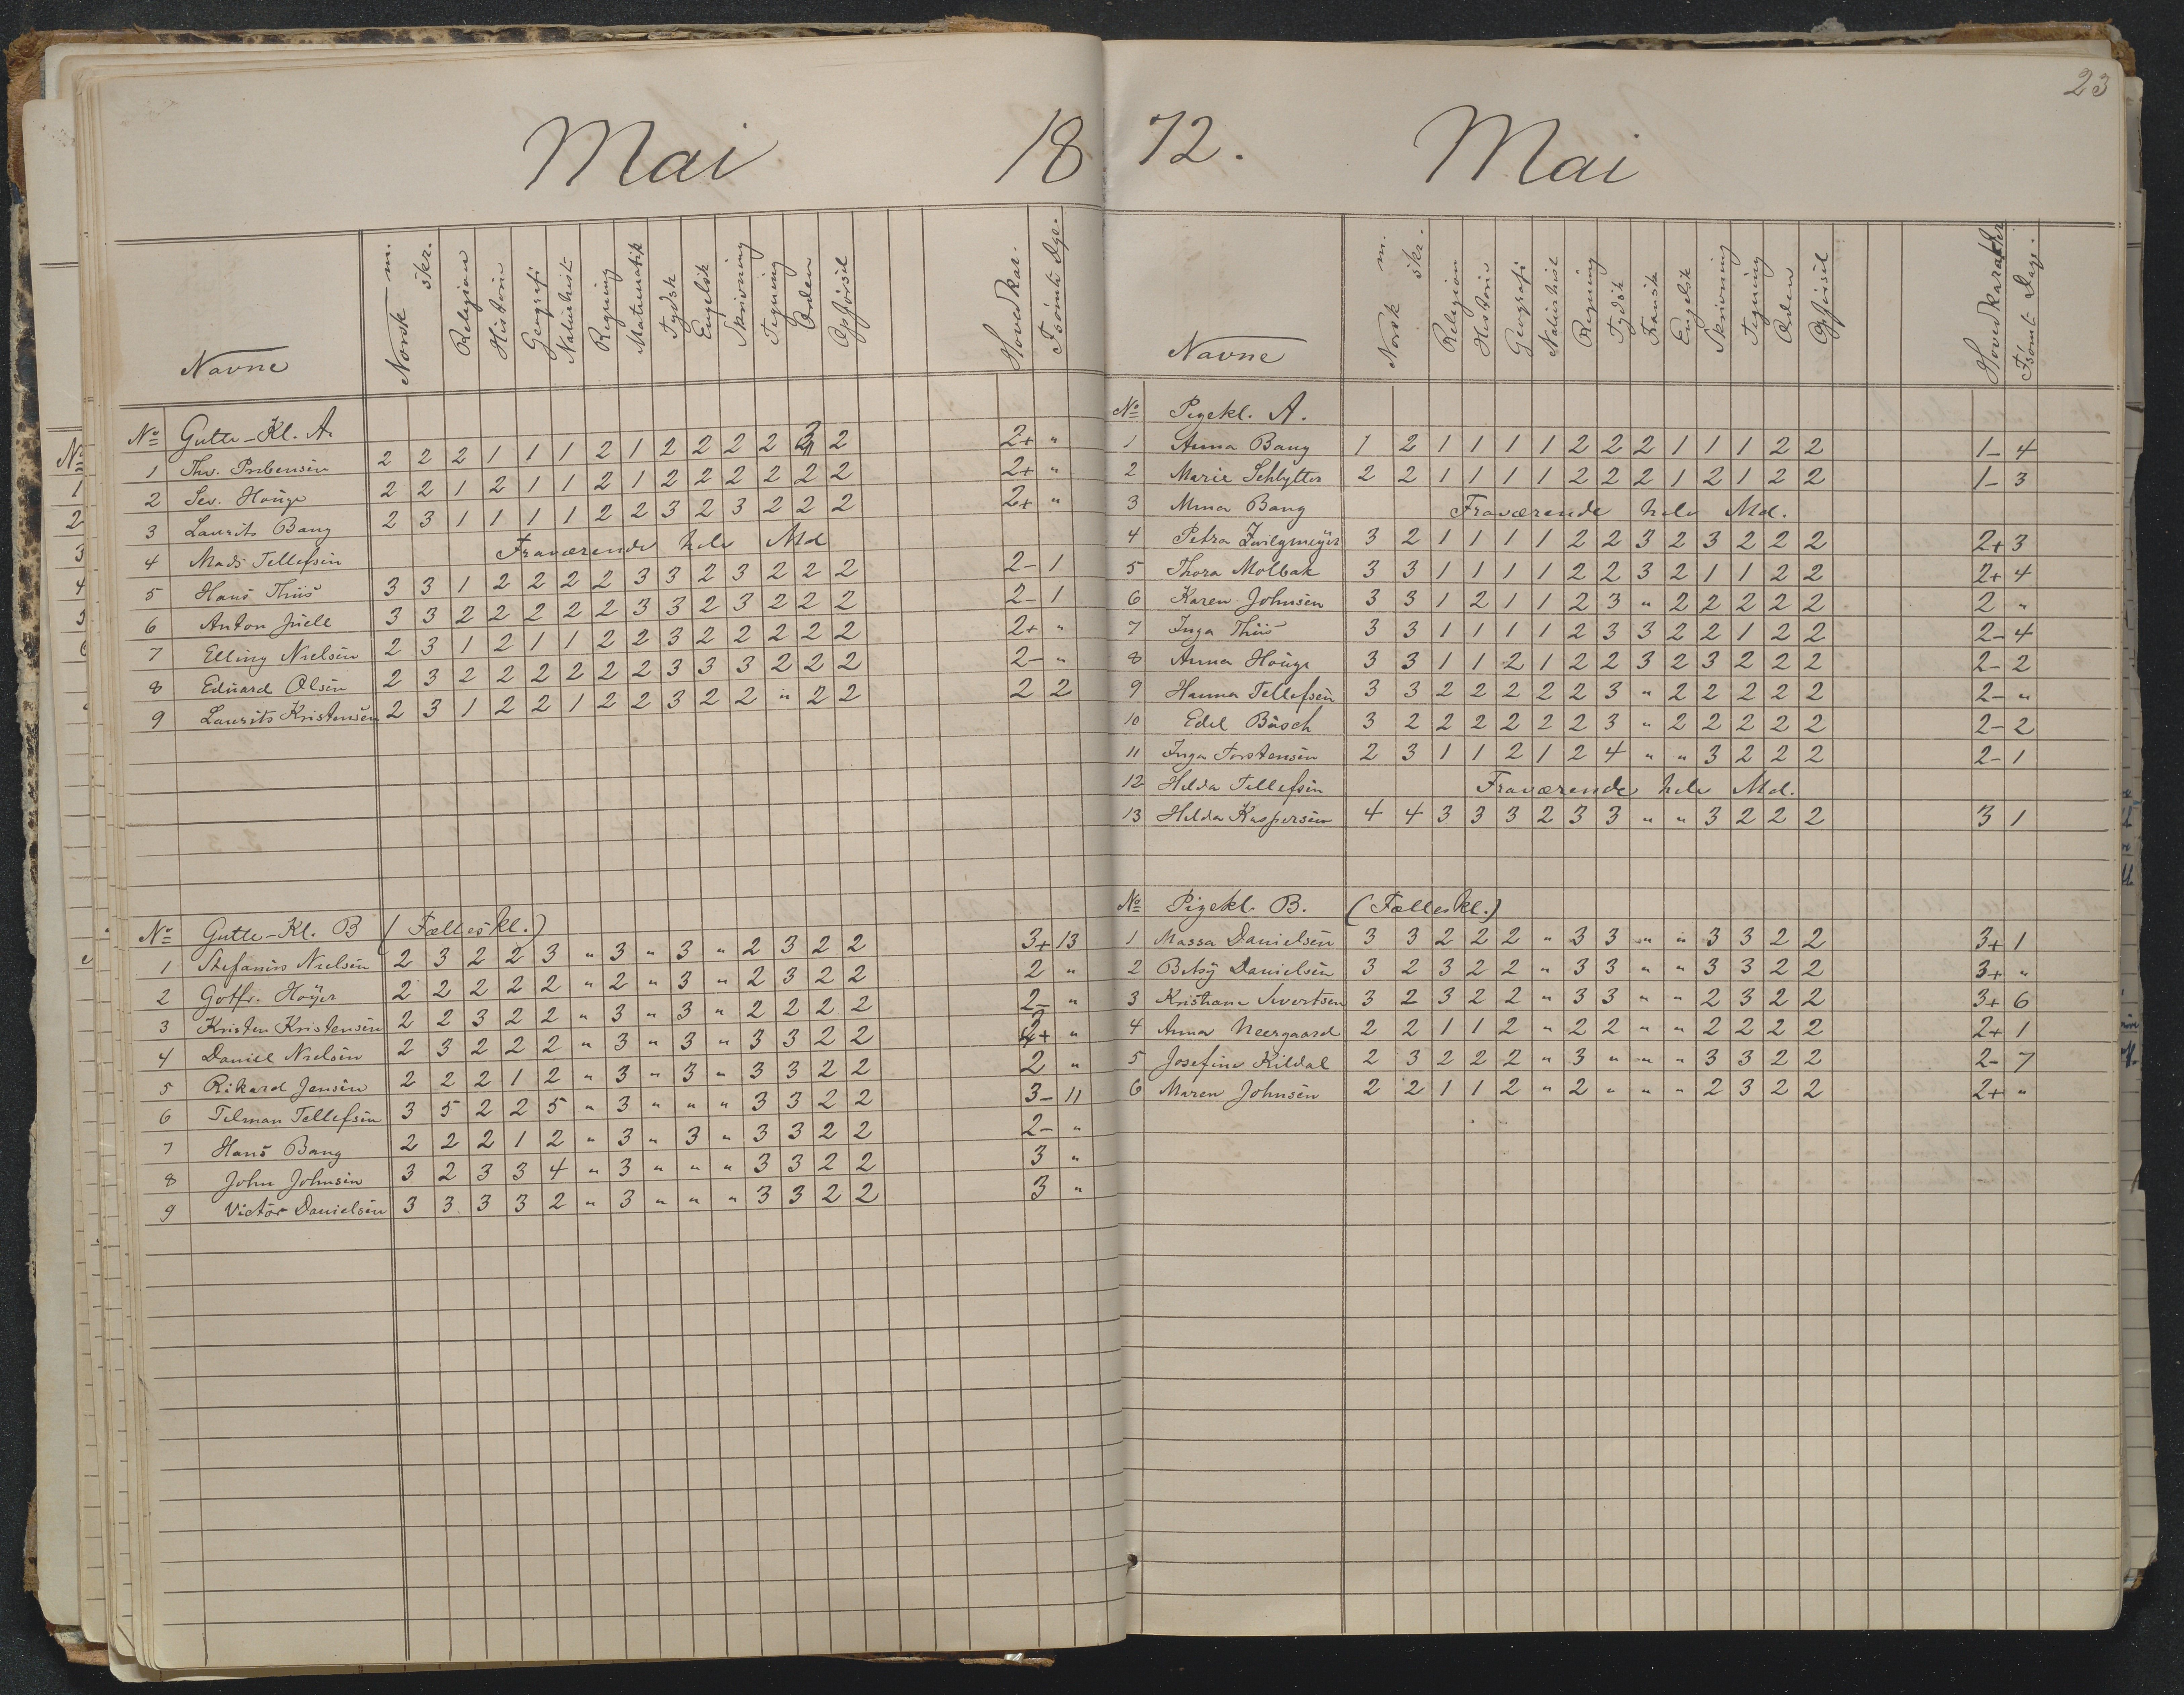 23
Mai 18
Navne Norsk m. skr. Religion Historie Geografi Naturhist Regning Matematik Tydsk Engelsk Skrivning Tegning Orden Opførsel Hovedkar. Fsömte Dge.
No Gutte-Kl. A.
1 Ths. Pribensen 2 2 2 1 1 1 2 1 2 2 2 2 2 2+ "
2 Sev. Houge 2 2 1 2 1 1 2 1 2 2 2 2 2 2 2+ "
3 Laurits Bang 2 3 1 1 1 1 2 2 3 2 3 2 2 2 2+ "
4 Mads Tellefsen Fraværende hele Md
5 Hans Thiis 3 3 1 2 2 2 2 3 3 2 3 2 2 2 2- 1
6 Anton Juell 3 3 2 2 2 2 2 3 3 2 3 2 2 2 2- 1
7 Elling Nielsen 2 3 1 2 1 1 2 2 3 2 2 2 2 2 2+ "
8 Eduard Olsen 2 3 2 2 2 2 2 2 3 3 3 2 2 2 2- "
9 Laurits Kristensen 2 3 1 2 2 1 2 2 3 2 2 " 2 2 2 2
No Gutte-Kl. B (Fælleskl.)
1 Stefanus Nielsen 2 3 2 2 3 " 3 " 3 " 2 3 2 2 3+ 13
2 Gotfr. Høyer 2 2 2 2 2 " 2 " 3 " 2 3 2 2 2 "
3 Kristen Kristensen 2 2 3 2 2 " 3 " 3 " 2 2 2 2 2- "
4 Daniel Nielsen 2 3 2 2 2 " 3 " 3 " 3 3 2 2 + "
5 Rikard Jensen 2 2 2 1 2 " 3 " 3 " 3 3 2 2 2 "
6 Tilman Tellefsen 3 5 2 2 5 " 3 " " " 3 3 2 2 3- 11
7 Hans Bang 2 2 2 1 2 " 3 " 3 " 3 3 2 2 2- "
8 John Johnsen 3 2 3 3 4 " 3 " " " 3 3 2 2 3 "
9 Victor Danielsen 3 3 3 3 2 " 3 " " " 3 3 2 2 3 "
72. Mai
Navne Norsk m. skr. Religion Historie Geografi Naturhist Regning Tydsk Fransk Engelsk Skrivning Tegning Orden Opførsel Hovedkarakter Fsömt Dage.
No Pigekl. A.
1 Anna Bang 1 2 1 1 1 1 2 2 2 1 1 1 2 2 1- 4
2 Marie Schlytter 2 2 1 1 1 1 2 2 2 1 2 1 2 2 1- 3
3 Mina Bang Fraværende hele Md.
4 Petra Zwilgmeyer 3 2 1 1 1 1 2 2 3 2 3 2 2 2 2+ 3
5 Thora Molbak 3 3 1 1 1 1 2 2 3 2 1 1 2 2 2+ 4
6 Karen Johnsen 3 3 1 2 1 1 2 3 " 2 2 2 2 2 2 "
7 Inga Thiis 3 3 1 1 1 1 2 3 3 2 2 1 2 2 2- 4
8 Anna Houge 3 3 1 1 2 1 2 2 3 2 3 2 2 2 2- 2
9 Hanna Tellefsen 3 3 2 2 2 2 2 3 " 2 2 2 2 2 2- "
10 Edel Büsch 3 2 2 2 2 2 2 3 " 2 2 2 2 2 2- 2
11 Inga Torstensen 2 3 1 1 2 1 2 4 " " 3 2 2 2 2- 1
12 Hilda Tellefsen Fraværende hele Md.
13 Hilda Kaspersen 4 4 3 3 3 2 3 3 " " 3 2 2 2 3 1
No Pigekl. B. (Fælleskl.)
1 Massa Danielsen 3 3 2 2 2 " 3 3 " " 3 3 2 2 3+ 1
2 Betsy Danielsen 3 2 3 2 2 " 3 3 " " 3 3 2 2 3+ "
3 Kristiane Sivertsen 3 2 3 2 2 " 3 3 " " 2 3 2 2 3+ 6
4 Anna Neergaard 2 2 1 1 2 " 2 2 " " 2 2 2 2 2+ 1
5 Josefine Kildal 2 3 2 2 2 " 3 " " " 3 3 2 2 2- 7
6 Maren Johnsen 2 2 1 1 2 " 2 " " " 2 3 2 2 2+ "